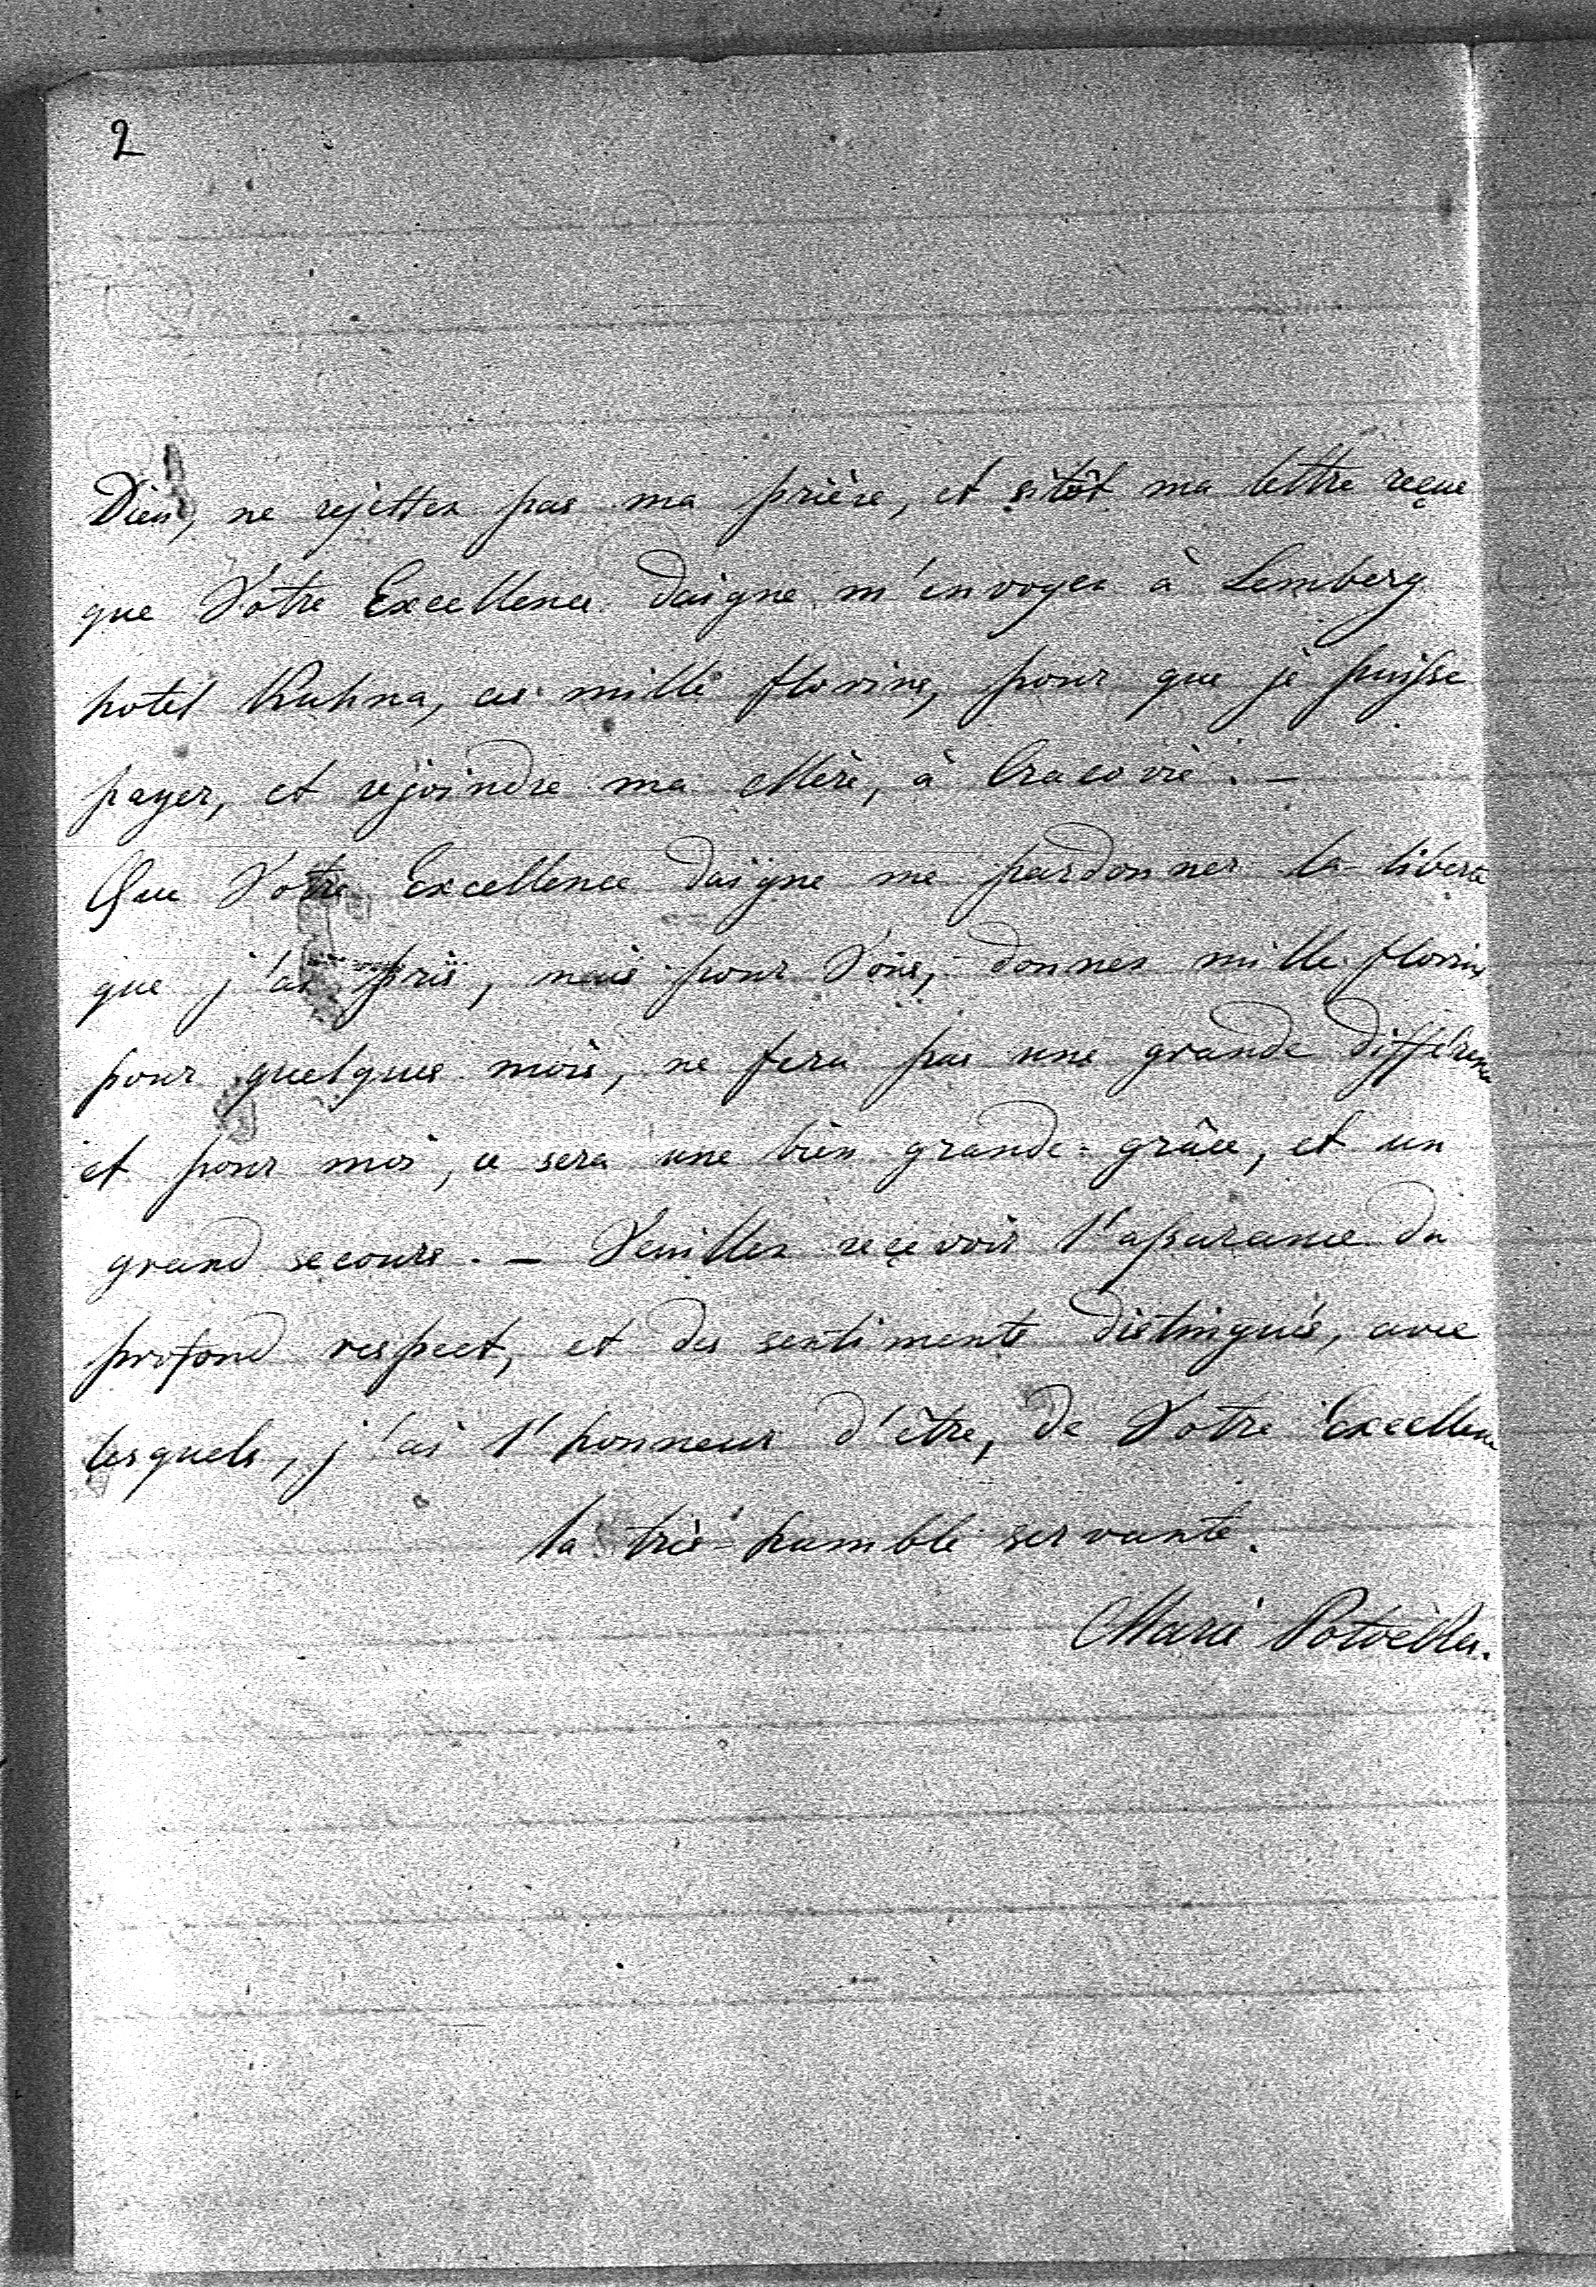 2
Dieu, ne rejettez pas ma prière, et sitôt ma lettre reçue
que Votre Excellence daigne m'envoyer à Lemberg
hotel Kuhna, ces mille florins, pour que je puisse
payer, et rejoindre ma Mère, à Cracovie. —
Que Votre Excellence daigne me pardonner la liberté
que j'ai pris, mais pour Vous, donner mille florins
pour quelques mois, ne fera pas une grande différence
et pour moi, ce sera une bien grande grâce, et un
grand secours. — Veuillez reçevoir l'assurance du
profond respect, et des sentiments distingués, avec
lesquels, j'ai l'honneur d'être, de Votre Excellence
la très-humble servante.
Marie